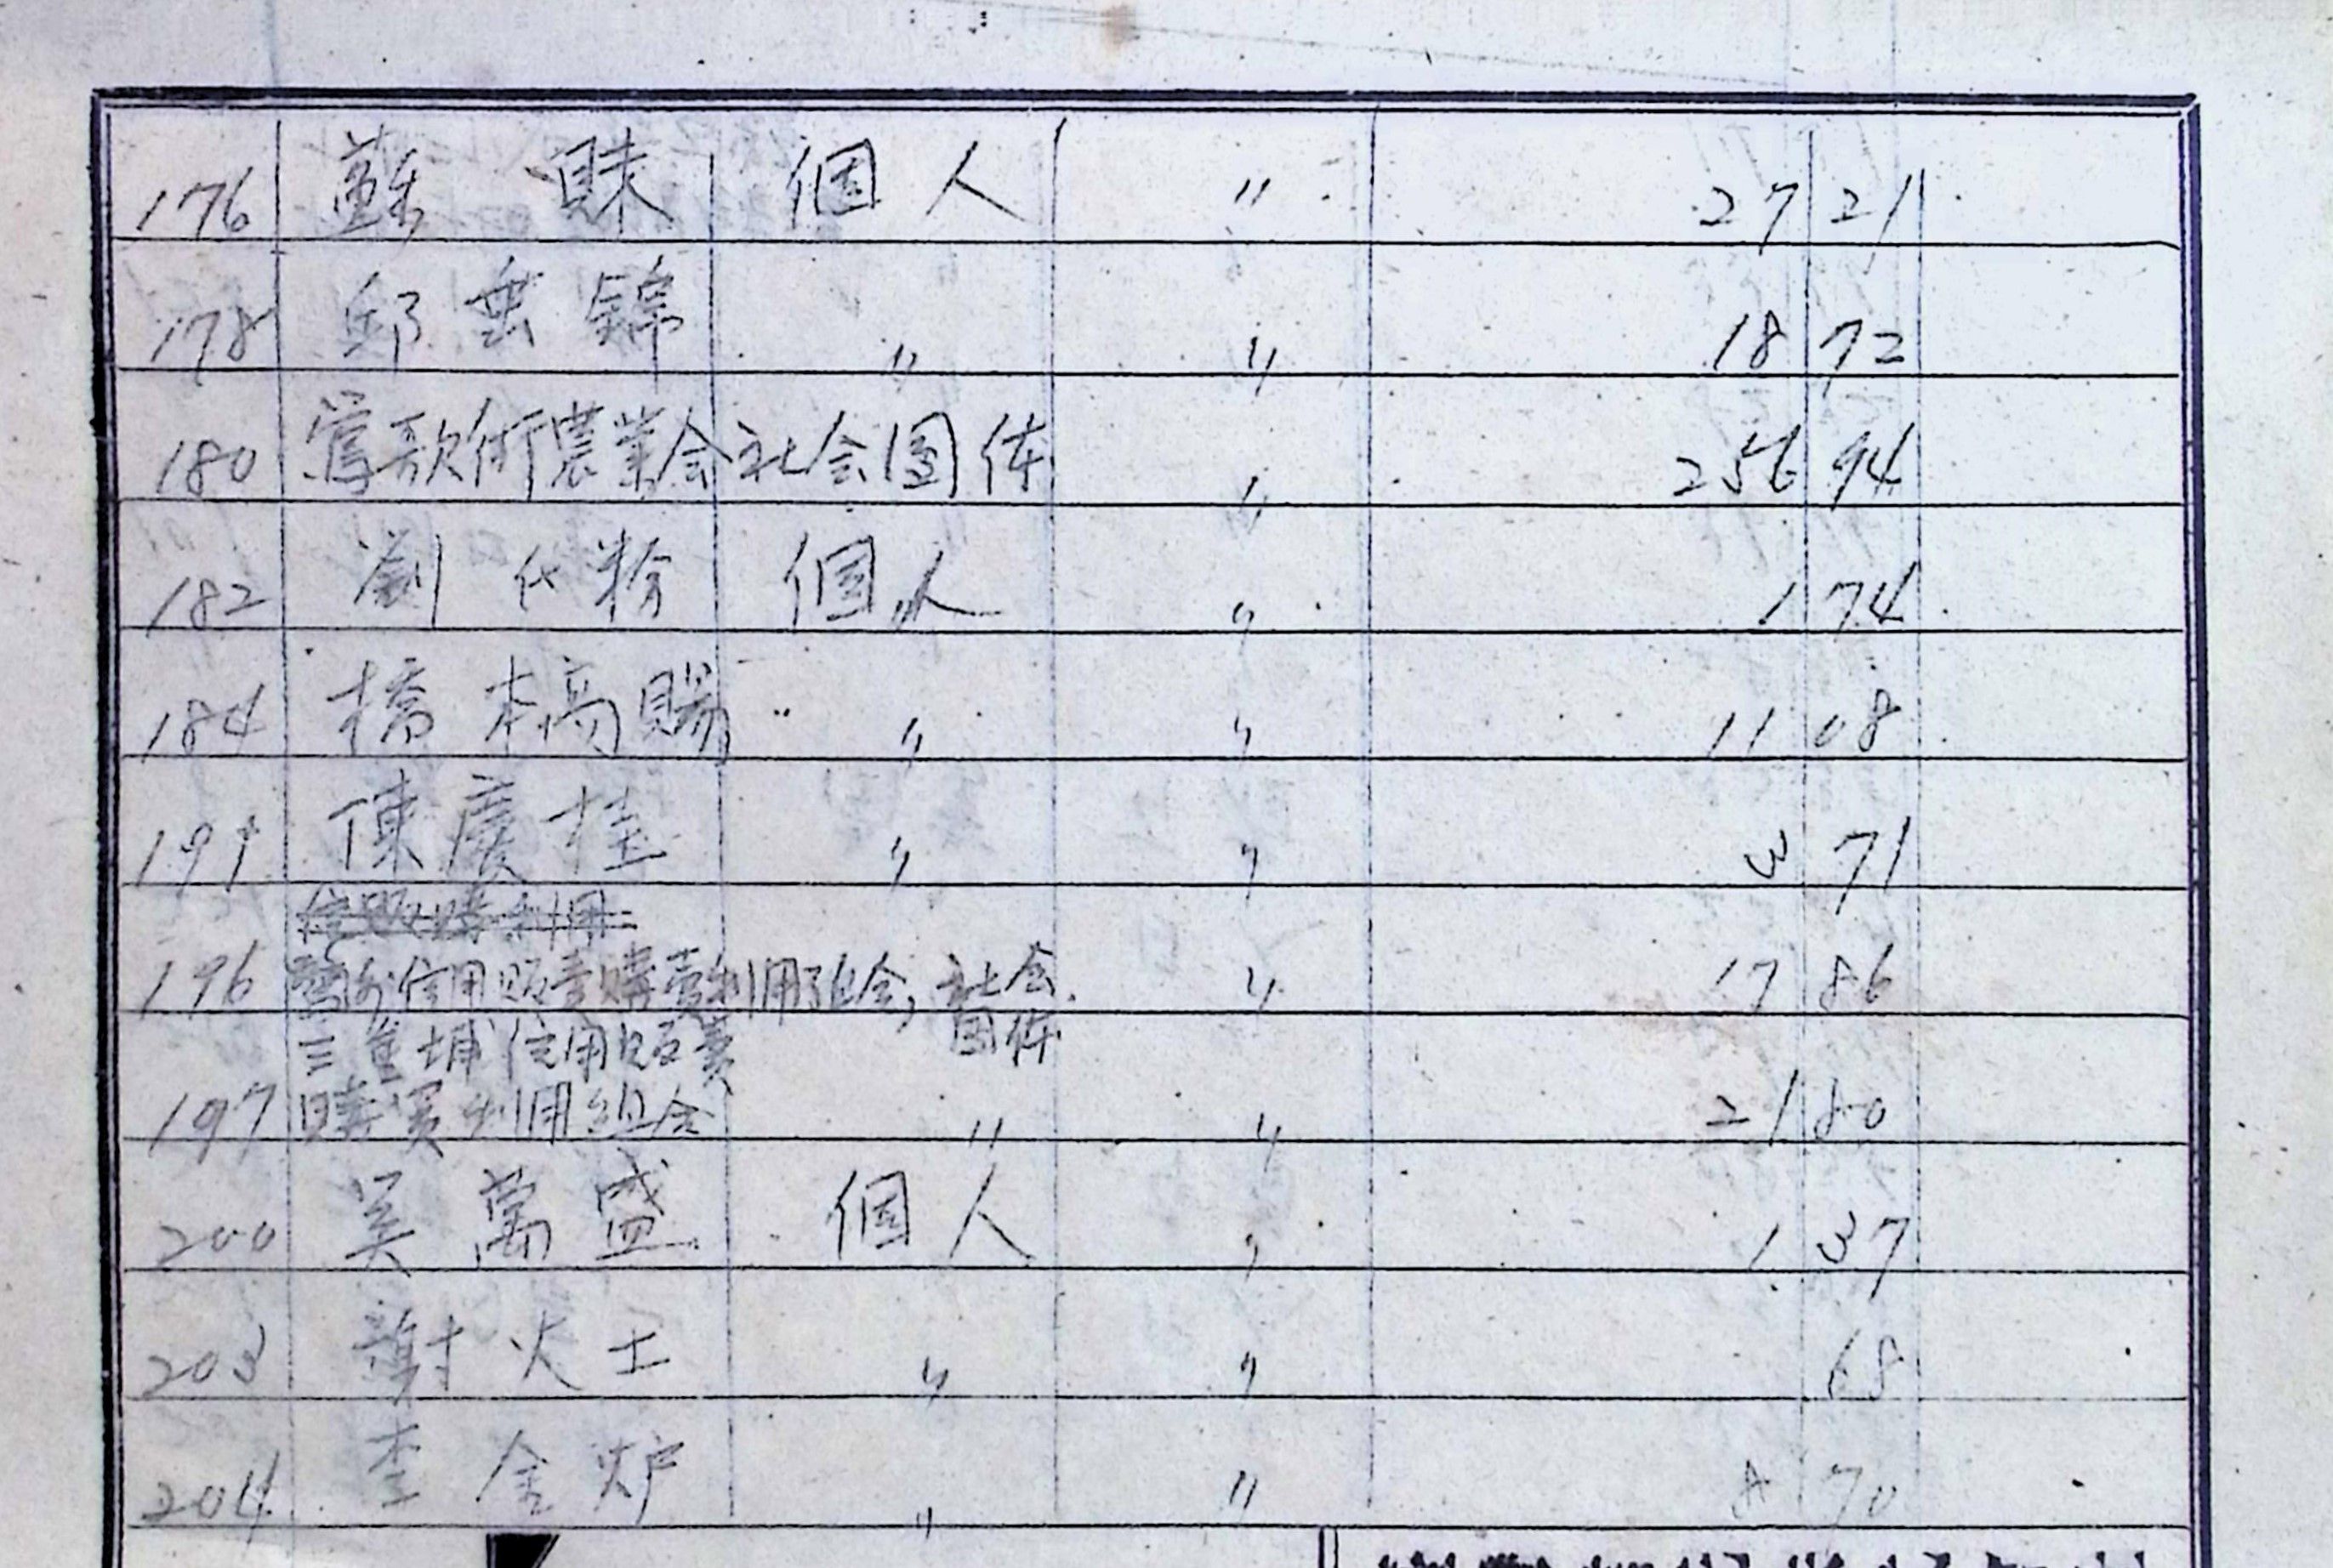 176 蘇 味 個人 〃 27 21
178 邱雲錦 〃 〃 18 72
180 鶯歌街農業会 社会团体 〃 256 94
182 劉代粉 個人 〃 1 74
184 橋本高賜 〃 〃 11 08
191 陳慶桂 〃 〃 3 71
196 信用販売購買利用組合, 社会团体 〃 17 86
三隻埔信用販賣
197 購買利用組合 〃 〃 21 80
200 吴萬盛 個人 〃 1 37
203 謝火土 〃 〃 68
204 李金炉 〃 〃 8 70